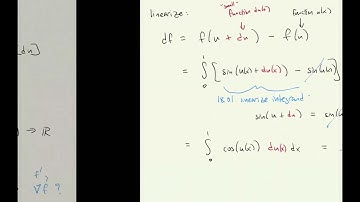 linearize:
"small"
function du(x)
function u(x)
df = f(u + du) - f(u)
= ∫₀¹ [sin(u(x) + du(x)) - sin(u(x))
18.01 linearize integrand
sin(u + du) = sin(u
= ∫₀¹ cos(u(x)) du(x) dx =
du]
→ ℝ
f'?
∇f ?